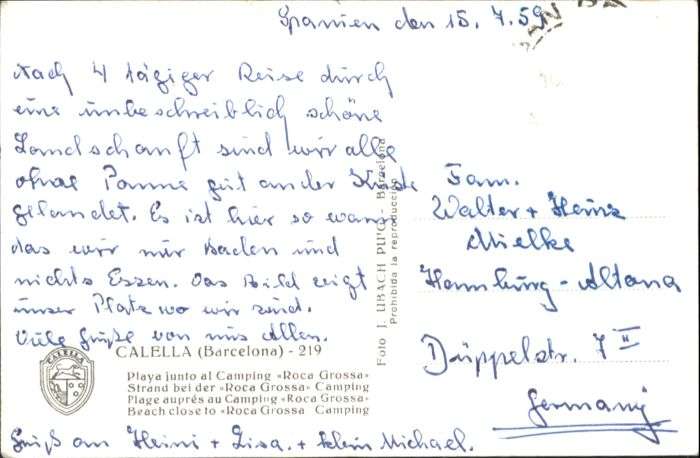 Spanien den 15. 7. 59
Nach 4 tägiger Reise durch
eine unbeschreiblich schöne
Landschanft sind wir alle
ohne Panne gut an der Küste
gelandet. Es ist hier so warm
das wir nur Baden und
nichts Essen. Das Bild zeigt
unser Platz wo wir sind.
Viele Grüße von uns Allen.
CALELLA
CALELLA (Barcelona) - 219
Playa junto al Camping «Roca Grossa»
Strand bei der «Roca Grossa» Camping
Plage auprés au Camping «Roca Grossa»
Beach close to «Roca Grossa Camping
Gruß an Heini + Lisa. + klein Michael.
Foto I. UBACH PU'G. - Barcelona
Prohibida la reproducción
Fam.
Walter + Heinz
Mielke
Hamburg-Altona
Düppelstr. 7 II
Germany